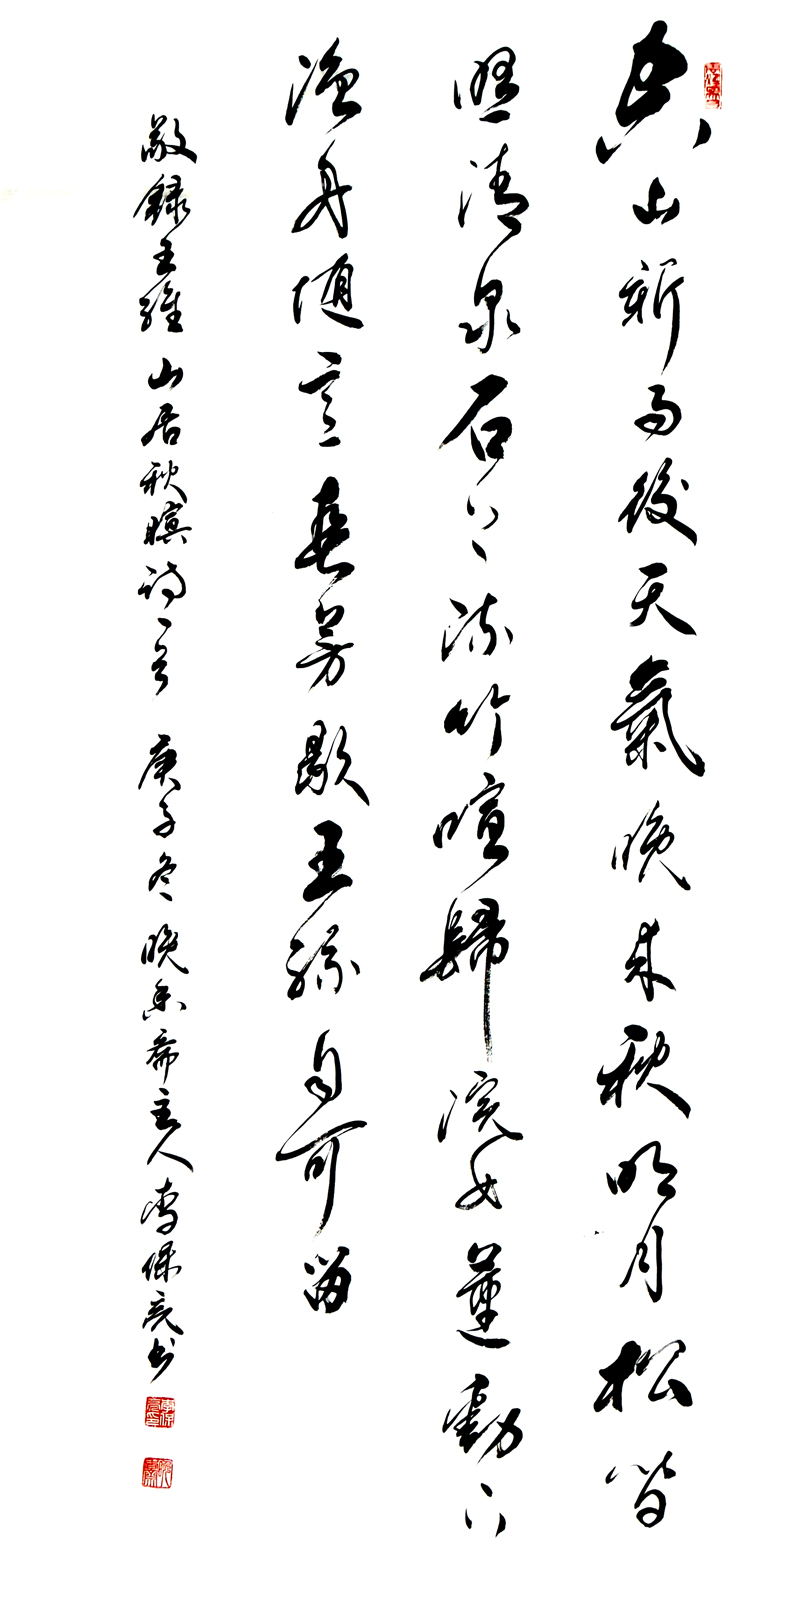 空山新雨後天氣晚来秋明月松間
照清泉石上流竹喧歸浣女蓮動下
渔舟随意春芳歇王孫自可留
敬録王維山居秋暝诗一首 庚子冬晚香斋主人保亮书